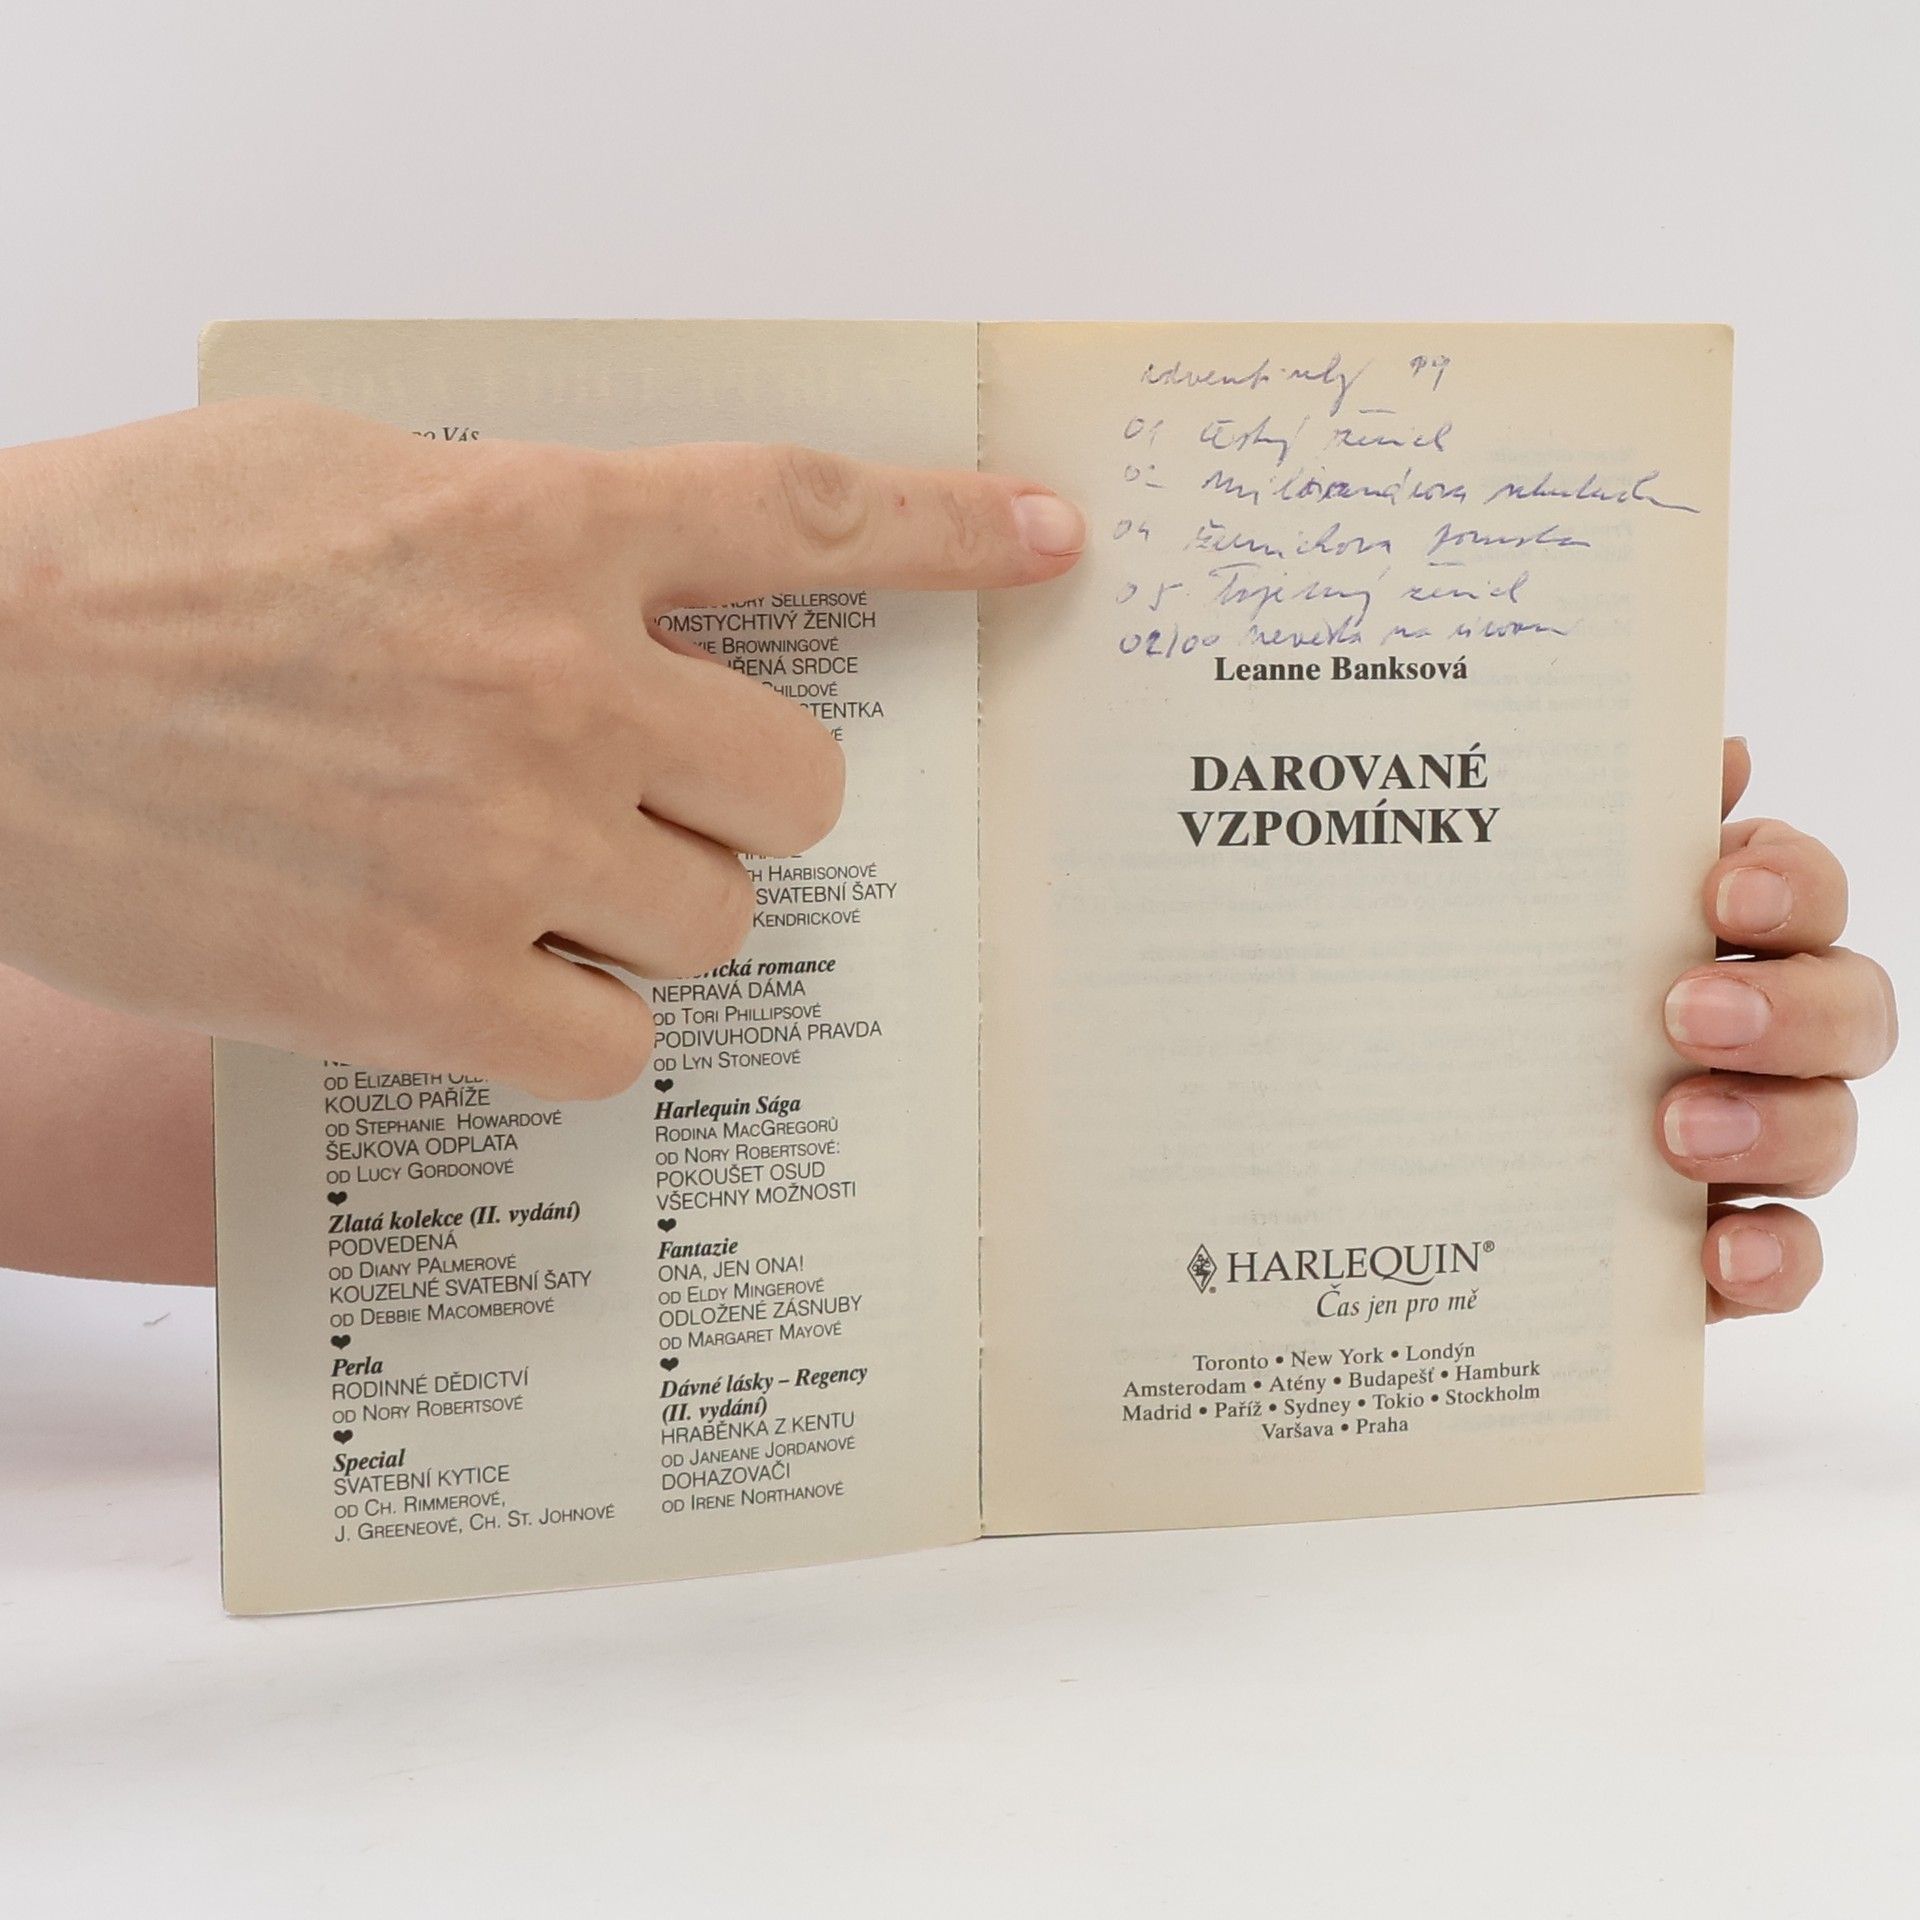 VÁS
SELLERSOVÉ
OMSTYCHTIVÝ ŽENICH
BROWNINGOVÉ
SRDCE
TH HARBISONOVÉ
SVATEBNÍ ŠATY
KENDRICKOVÉ
romance
NEPRAVÁ DÁMA
OD TORI PHILLIPSOVÉ
PODIVUHODNÁ PRAVDA
OD LYN STONEOVÉ
❤
Harlequin Sága
RODINA MACGREGORŮ
OD NORY ROBERTSOVÉ:
POKOUŠET OSUD
VŠECHNY MOŽNOSTI
❤
Fantazie
ONA, JEN ONA!
OD ELDY MINGEROVÉ
ODLOŽENÉ ZÁSNUBY
OD MARGARET MAYOVÉ
❤
Dávné lásky – Regency
(II. vydání)
HRABĚNKA Z KENTU
OD JANEANE JORDANOVÉ
DOHAZOVAČI
OD IRENE NORTHANOVÉ
OD ELIZABETH
KOUZLO PAŘÍŽE
OD STEPHANIE HOWARDOVÉ
ŠEJKOVA ODPLATA
OD LUCY GORDONOVÉ
❤
Zlatá kolekce (II. vydání)
PODVEDENÁ
OD DIANY PALMEROVÉ
KOUZELNÉ SVATEBNÍ ŠATY
OD DEBBIE MACOMBEROVÉ
❤
Perla
RODINNÉ DĚDICTVÍ
OD NORY ROBERTSOVÉ
❤
Special
SVATEBNÍ KYTICE
OD CH. RIMMEROVÉ,
J. GREENEOVÉ, CH. ST. JOHNOVÉ
01 ženich
04 Ženichova pomsta
05 Tajemný ženich
02/00 nevěsta na
Leanne Banksová
DAROVANÉ
VZPOMÍNKY
HARLEQUIN®
Čas jen pro mě
Toronto • New York • Londýn
Amsterodam • Atény • Budapešť • Hamburk
Madrid • Paříž • Sydney • Tokio • Stockholm
Varšava • Praha